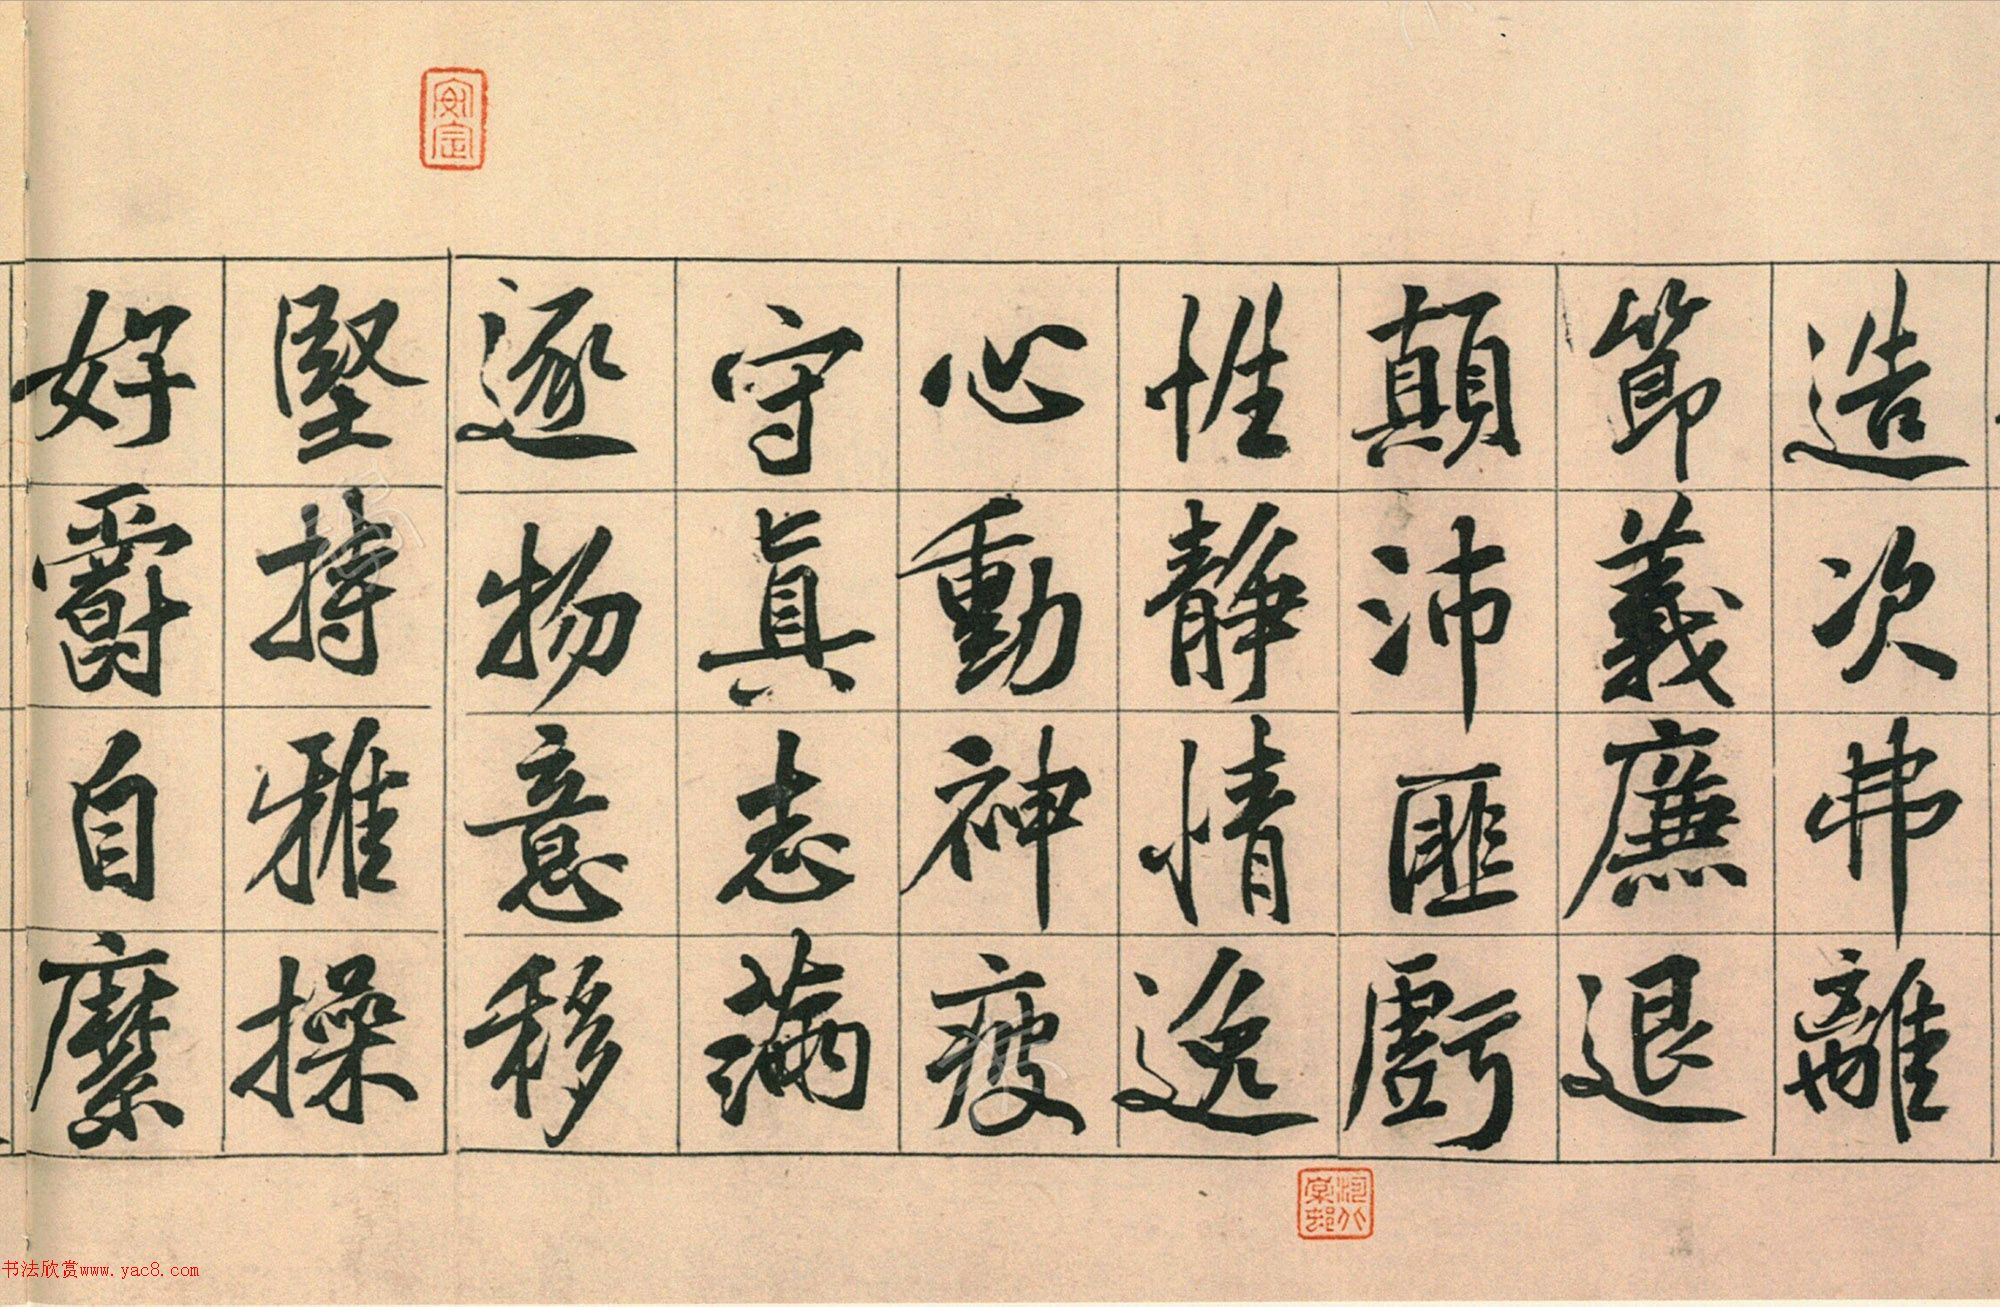 造次弗離
節義廉退
顛沛匪虧
性靜情逸
心動神疲
守真志滿
逐物意移
堅持雅操
好爵自縻
安定
書法欣赏www.yac8.com